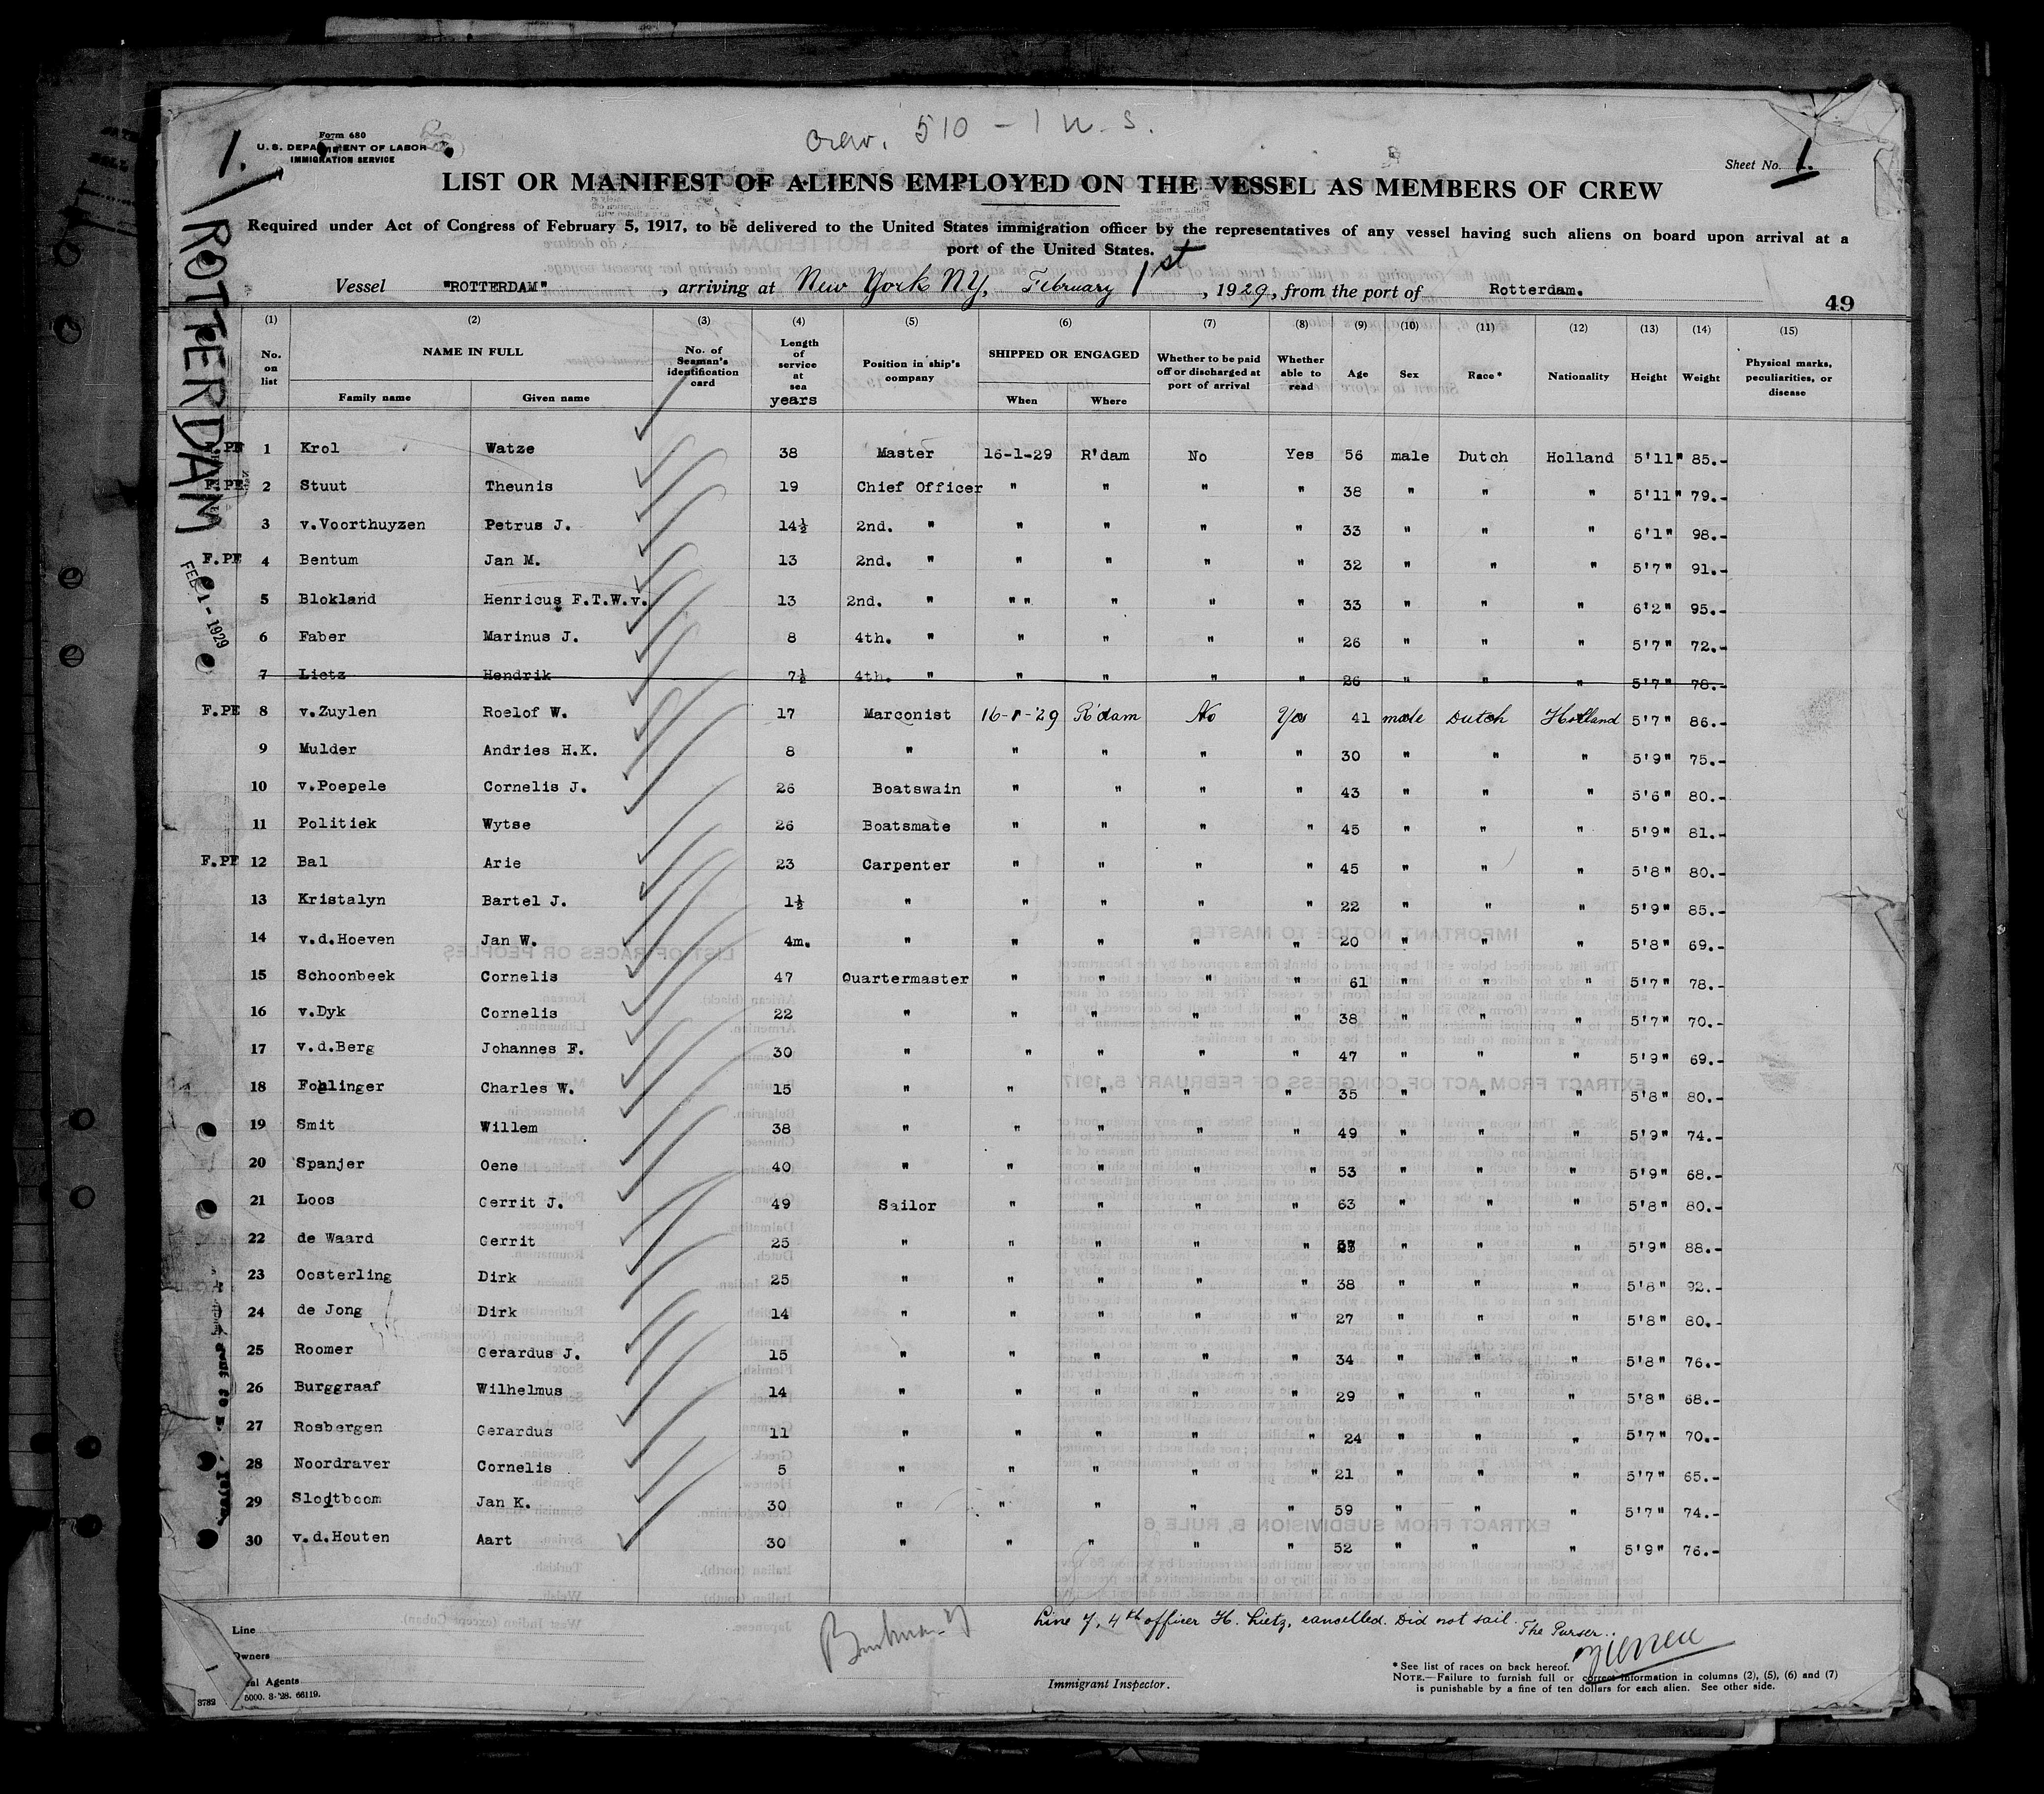 Crew. 510 - 1 N.S.
1.
Form 680
U.S. DEPARTMENT OF LABOR
IMMIGRATION SERVICE
Sheet No. 1.
LIST OR MANIFEST OF ALIENS EMPLOYED ON THE VESSEL AS MEMBERS OF CREW
Required under Act of Congress of February 5, 1917, to be delivered to the United States immigration officer by the representatives of any vessel having such aliens on board upon arrival at a
port of the United States.
Vessel "ROTTERDAM", arriving at New York NY, February 1st, 1929, from the port of Rotterdam.
49
ROTTERDAM
FEB 1-1929
(1) (2) (3) (4) (5) (6) (7) (8) (9) (10) (11) (12) (13) (14) (15)
No. on list NAME IN FULL Family name Given name No. of Seaman's identification card Length of service at sea years Position in ship's company SHIPPED OR ENGAGED When Where Whether to be paid off or discharged at port of arrival Whether able to read Age Sex Race* Nationality Height Weight Physical marks, peculiarities, or disease
F.PE 1 Krol Watze 38 Master 16-1-29 R'dam No Yes 56 male Dutch Holland 5'11" 85.-
F.PE 2 Stuut Theunis 19 Chief Officer " " " " 38 " " " 5'11" 79.-
3 v.Voorthuyzen Petrus J. 14½ 2nd. " " " " " 33 " " " 6'1" 98.-
F.PE 4 Bentum Jan M. 13 2nd. " " " " " 32 " " " 5'7" 91.-
5 Blokland Henricus F.T.W.v. 13 2nd. " " " " " " 33 " " " 6'2" 95.-
6 Faber Marinus J. 8 4th. " " " " " 26 " " " 5'7" 72.-
7 Lietz Hendrik 7½ 4th. " " " " " 26 " " " 5'7" 78.-
F.PE 8 v.Zuylen Roelof W. 17 Marconist 16-1-'29 R'dam No Yes 41 male Dutch Holland 5'7" 86.-
9 Mulder Andries H.K. 8 " " " " " 30 " " " 5'9" 75.-
10 v.Poepele Cornelis J. 26 Boatswain " " " " 43 " " " 5'6" 80.-
11 Politiek Wytse 26 Boatsmate " " " " 45 " " " 5'9" 81.-
F.PE 12 Bal Arie 23 Carpenter " " " " 45 " " " 5'8" 80.-
13 Kristalyn Bartel J. 1½ " " " " " 22 " " " 5'9" 85.-
14 v.d.Hoeven Jan W. 4m. " " " " " 20 " " " 5'8" 69.-
15 Schoonbeek Cornelis 47 Quartermaster " " " " 61 " " " 5'7" 78.-
16 v.Dyk Cornelis 22 " " " " " 38 " " " 5'7" 70.-
17 v.d.Berg Johannes F. 30 " " " " " 47 " " " 5'9" 69.-
18 Fohlinger Charles W. 15 " " " " " 35 " " " 5'8" 80.-
19 Smit Willem 38 " " " " " 49 " " " 5'9" 74.-
20 Spanjer Oene 40 " " " " " 53 " " " 5'9" 68.-
21 Loos Gerrit J. 49 Sailor " " " " 63 " " " 5'8" 80.-
22 de Waard Gerrit 25 " " " " " " " " 5'9" 88.-
23 Oosterling Dirk 25 " " " " " 38 " " " 5'8" 92.-
24 de Jong Dirk 14 " " " " " 27 " " " 5'8" 80.-
25 Roomer Gerardus J. 15 " " " " " 34 " " " 5'8" 76.-
26 Burggraaf Wilhelmus 14 " " " " " 29 " " " 5'8" 68.-
27 Rosbergen Gerardus 11 " " " " " 24 " " " 5'7" 70.-
28 Noordraver Cornelis 5 " " " " " 21 " " " 5'7" 65.-
29 Slootboom Jan K. 30 " " " " " 59 " " " 5'7" 74.-
30 v.d.Houten Aart 30 " " " " " 52 " " " 5'9" 76.-
Line 7, 4th officer H. Lietz, cancelled. Did not sail. The Purser.
Line
Owners
Agents
5000. 3-'28. 66119.
3782
Immigrant Inspector.
*See list of races on back hereof.
NOTE.—Failure to furnish full or correct information in columns (2), (5), (6) and (7)
is punishable by a fine of ten dollars for each alien. See other side.